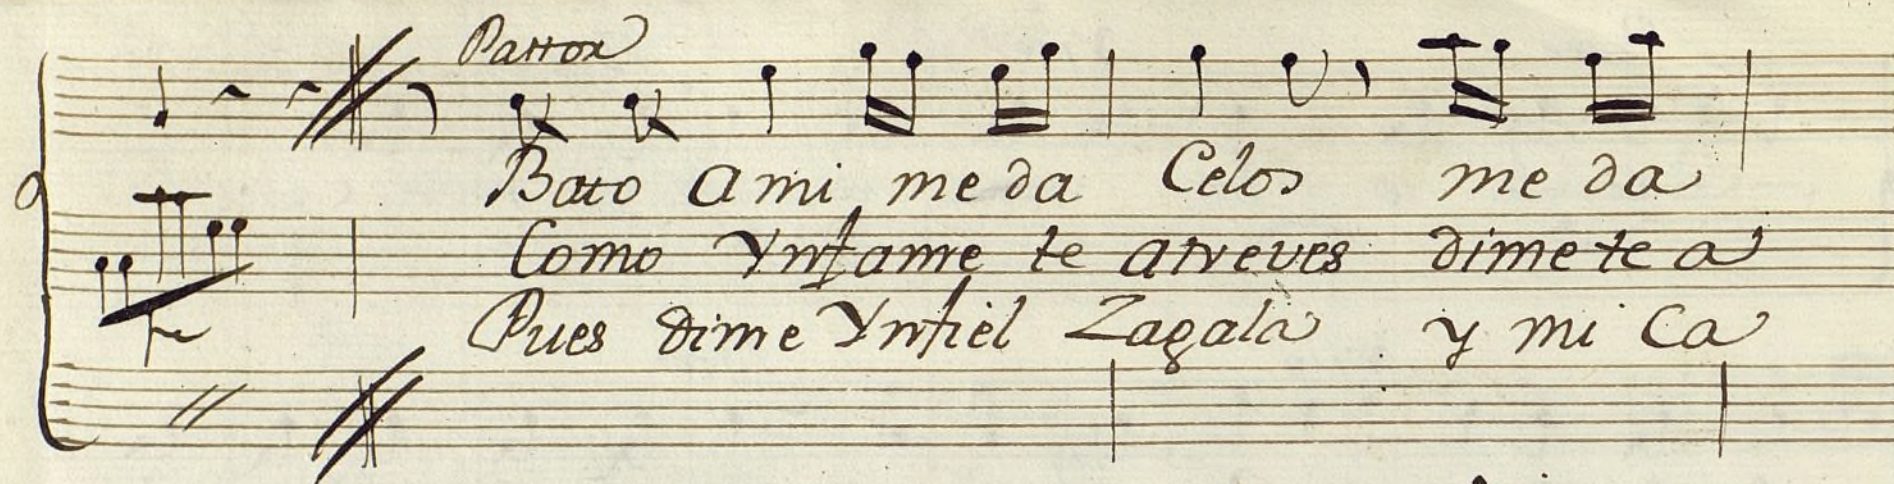 Pastor
Bato a mi me da Celos me da
Como Ynfame te atreves dime te a
Pues dime Ynfiel Zagala y mi Ca